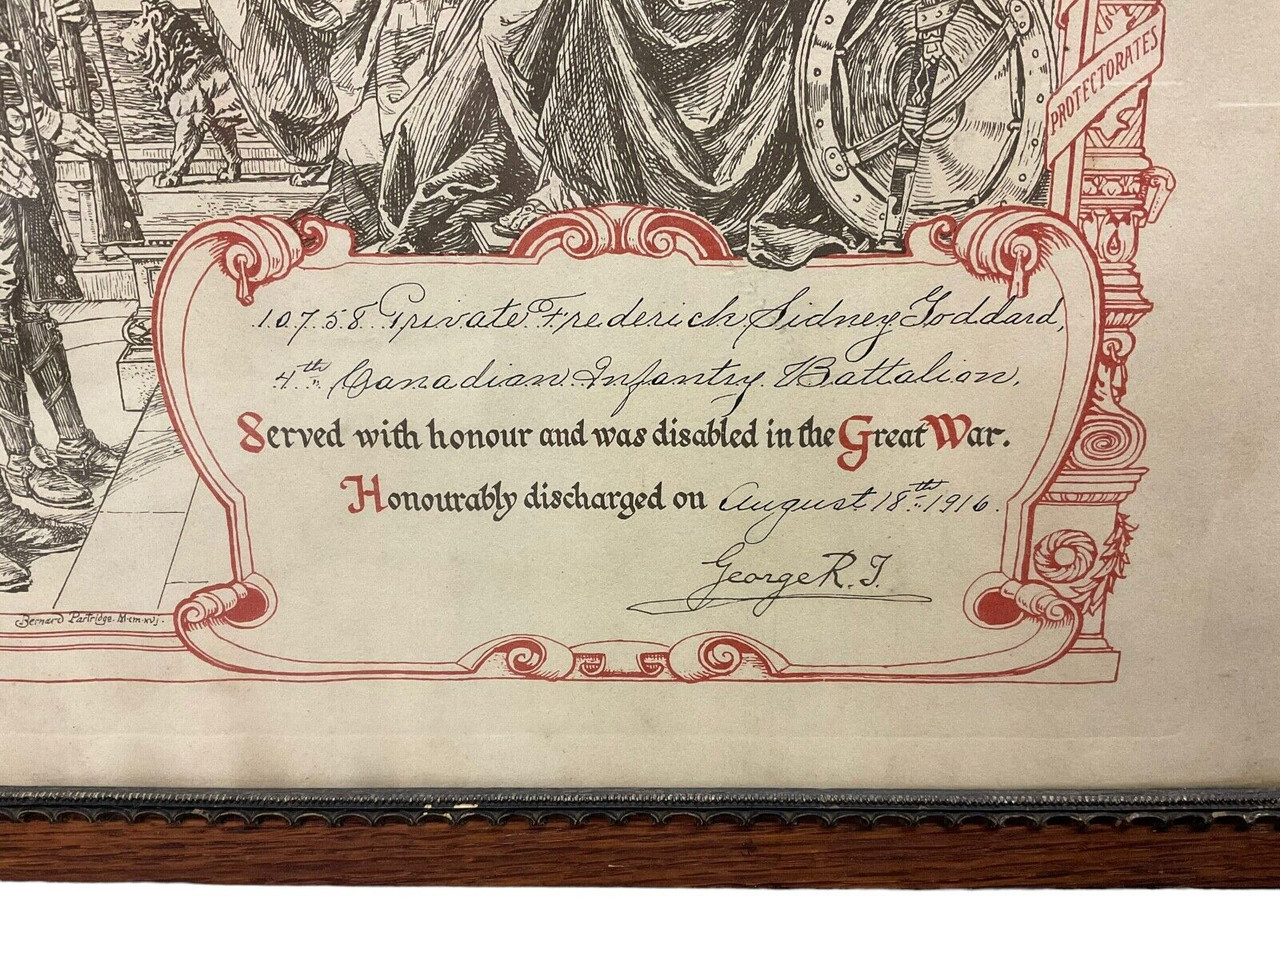 PROTECTORATES
10758 Private Frederick Sidney Goddard,
4th Canadian Infantry Battalion,
Served with honour and was disabled in the Great War.
Honourably discharged on August 18th 1916.
George R.I.
Bernard Partridge. M·cm·xvj.